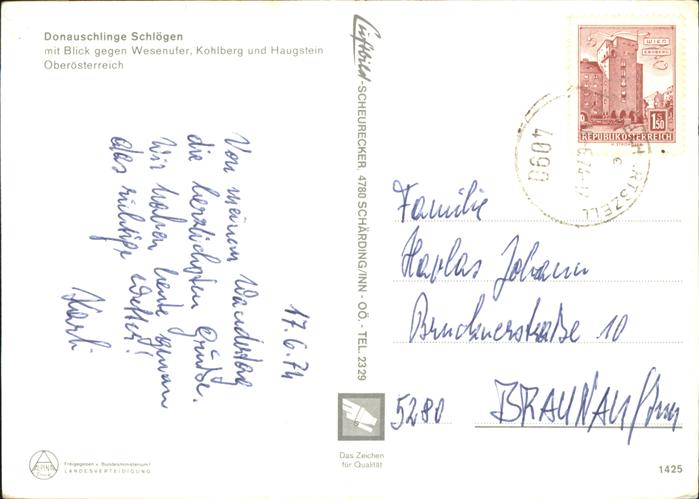 Donauschlinge Schlögen
mit Blick gegen Wesenufer, Kohlberg und Haugstein
Oberösterreich
17.6.74
Von meinem Wandertag
die herzlichsten Grüße.
Wir haben heute genau
das richtige Wetter!
Karli
Luftbild-SCHEURECKER, 4780 SCHÄRDING/INN - OÖ. - TEL. 2329
WIEN
ERDBERG
S
1.50
REPUBLIK ÖSTERREICH
4090
Familie
Havlas Johann
Brucknerstraße 10
5280 BRAUNAU/Inn
Das Zeichen
für Qualität
ALPINA
Freigegeben v. Bundesministerium f.
LANDESVERTEIDIGUNG
1425